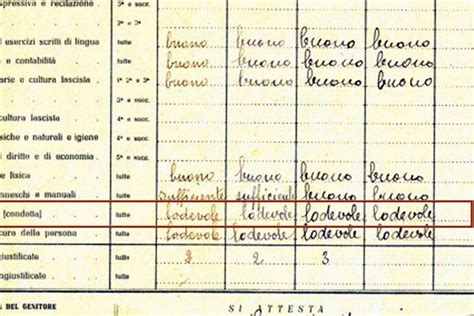 espressiva e recitazione . 3ª e succ.
1ª 2ª 3ª
ed esercizi scritti di lingua tutte buono buono buono buono
e contabilità tutte buono buono buono buono
arie e cultura fascista 1ª 2ª 3ª buono buono buono buono
3ª e succ.
cultura fascista 4ª e succ.
siche e naturali e igiene 4ª e succ.
di diritto e di economia . 5ª e succ.
e fisica tutte buono buono buono buono
nneschi e manuali tutte sufficiente sufficiente buono buono
[condotta] tutte lodevole lodevole lodevole lodevole
cura della persona tutte lodevole lodevole lodevole lodevole
giustificate tutte 2 2 3
ngiustificate tutte
A DEL GENITORE SI ATTESTA